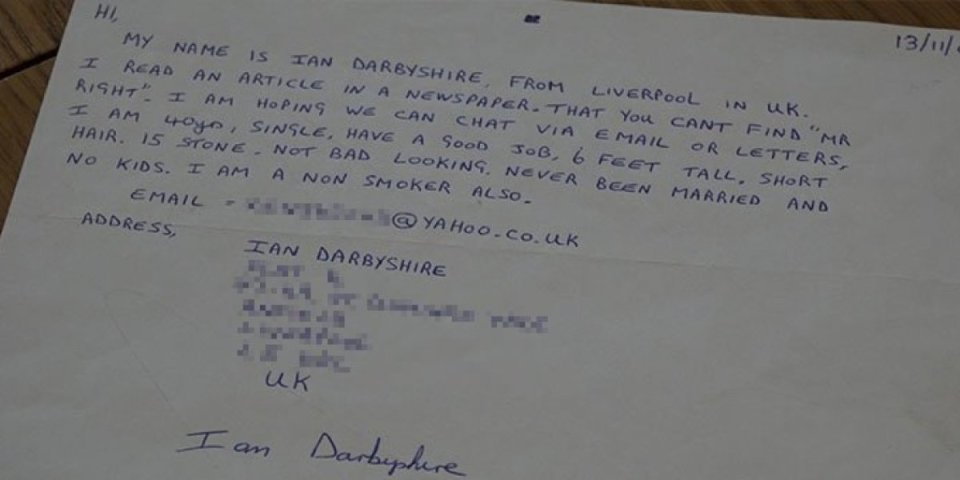 13/11/
HI,
MY NAME IS IAN DARBYSHIRE, FROM LIVERPOOL IN UK.
I READ AN ARTICLE IN A NEWSPAPER. THAT YOU CANT FIND "MR
RIGHT". I AM HOPING WE CAN CHAT VIA EMAIL OR LETTERS,
I AM 40yrs, SINGLE, HAVE A GOOD JOB, 6 FEET TALL, SHORT
HAIR. 15 STONE. NOT BAD LOOKING. NEVER BEEN MARRIED AND
NO KIDS. I AM A NON SMOKER ALSO.
EMAIL = @YAHOO.CO.UK
ADDRESS,
IAN DARBYSHIRE
UK
Ian Darbyshire